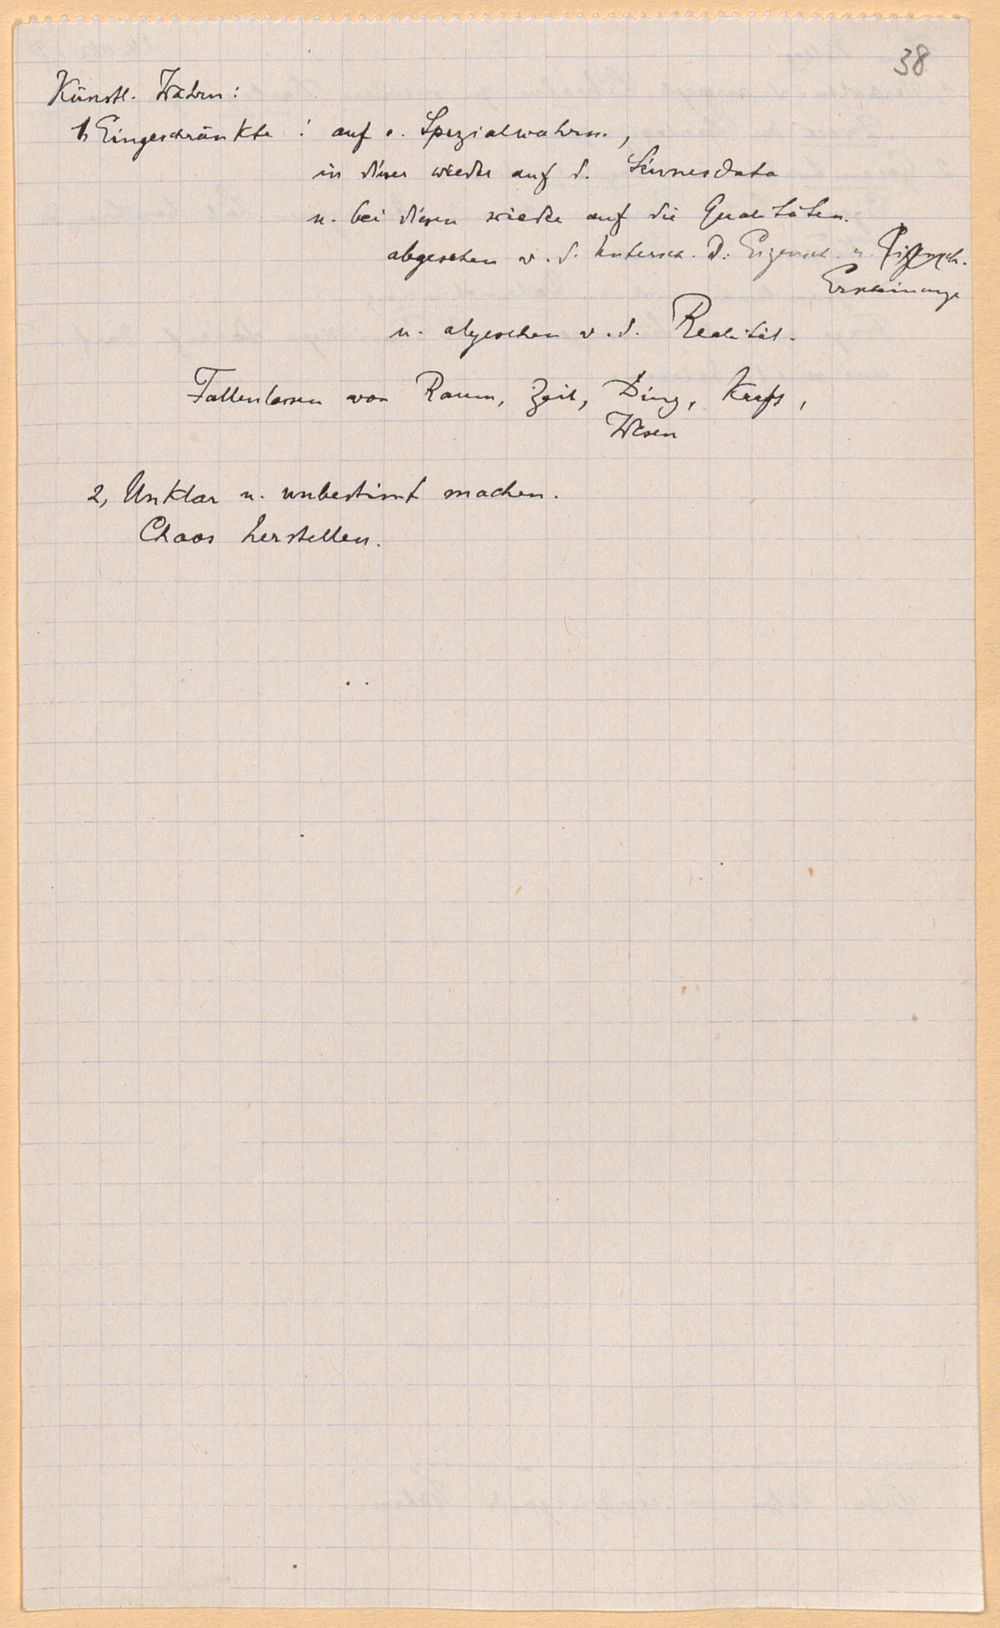 38
Künstl. Wahrn:
1, Eingeschränkte : auf e. Spezialwahrn.,
in dieser wieder auf d. Sinnesdata
u. bei diesen wieder auf die Qualitäten.
abgesehen v. d. Untersch. d. Eigensch. u.
Erscheinunge
u. abgesehen v. d. Realität.
Fallenlassen von Raum, Zeit, Ding, Kraft,
Wesen
2, Unklar u. unbestimt machen.
Chaos herstellen.